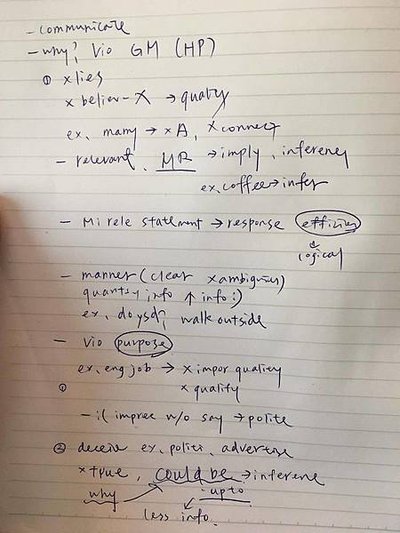 - communicate
- why? Vio GM (HP)
① x lies
x believ - X → quality
ex. many → x A, x connect
- relevant, MR → imply, inference
ex. coffee → infer
- Mi rele statement → response efficien
↓
logical
- manner (clear x ambiguous)
quantity info ↑ info:)
ex. do you walk outside
- Vio purpose
ex. eng job → x impor quality
① x quality
- il impree w/o say → polite
② deceive ex. politi, advertise
x true, could be → inference
why up to
less info.